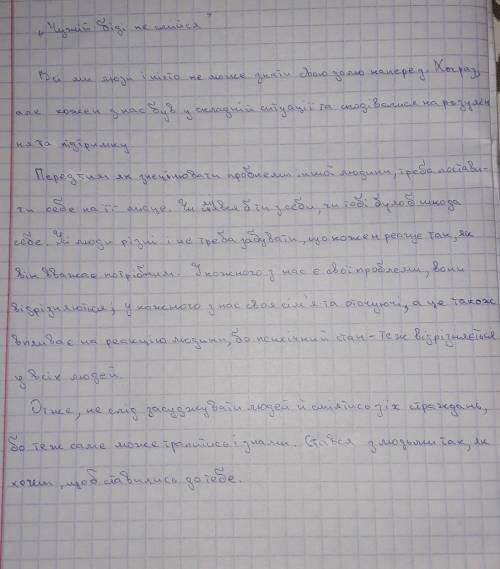 „Чужій біді не смійся"
Всі ми люди і ніхто не може знати свою долю наперед. Хоч раз,
але кожен з нас був у складній ситуації та сподівалися на розумін-
ня та підтримку
Перед тим як знецінювати проблеми іншої людини, треба постави-
ти себе на її місце. Чи сміявся б ти з себи, чи тобі було б шкода
себе. Усі люди різні і не треба забувати, що кожен реагує так, як
він вважає потрібним. У кожного з нас є свої проблеми, вони
відрізняються, у кожного з нас своя сім'я та оточуючі, а це також
впливає на реакцію людини, бо психічний стан - теж відрізняється
у всіх людей.
Отже, не слід засуджувати людей й сміятись з їх страждань,
бо теж саме може трапитись і з нами. Стався з людьми так, як
хочеш, щоб ставились до тебе.